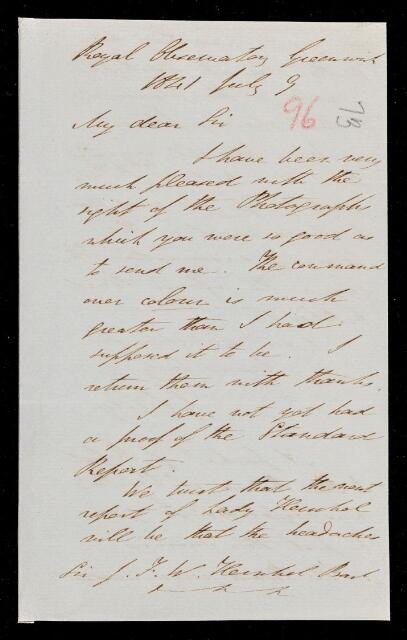 Royal Observatory Greenwich
1841 July 9
96
73
My dear Sir
I have been very
much pleased with the
sight of the Photographs
which you were so good as
to send me. The command
over colour is much
greater than I had
supposed it to be. I
return them with thanks.
I have not yet had
a proof of the Standard
Report.
We trust that the next
report of Lady Herschel
will be that the headaches
Sir J. F. W. Herschel Bart.